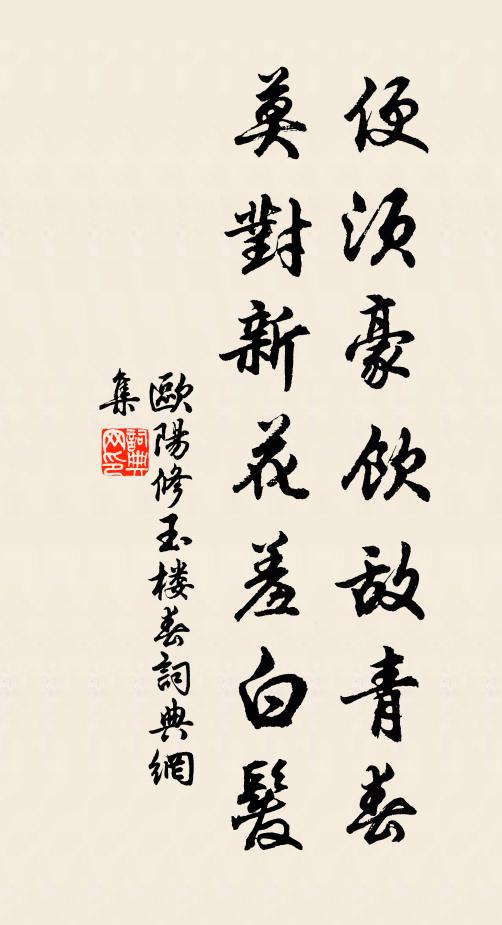 便須豪飲敵青春
莫對新花羞白髮
歐陽修玉楼春詞典網
集
詞典网印